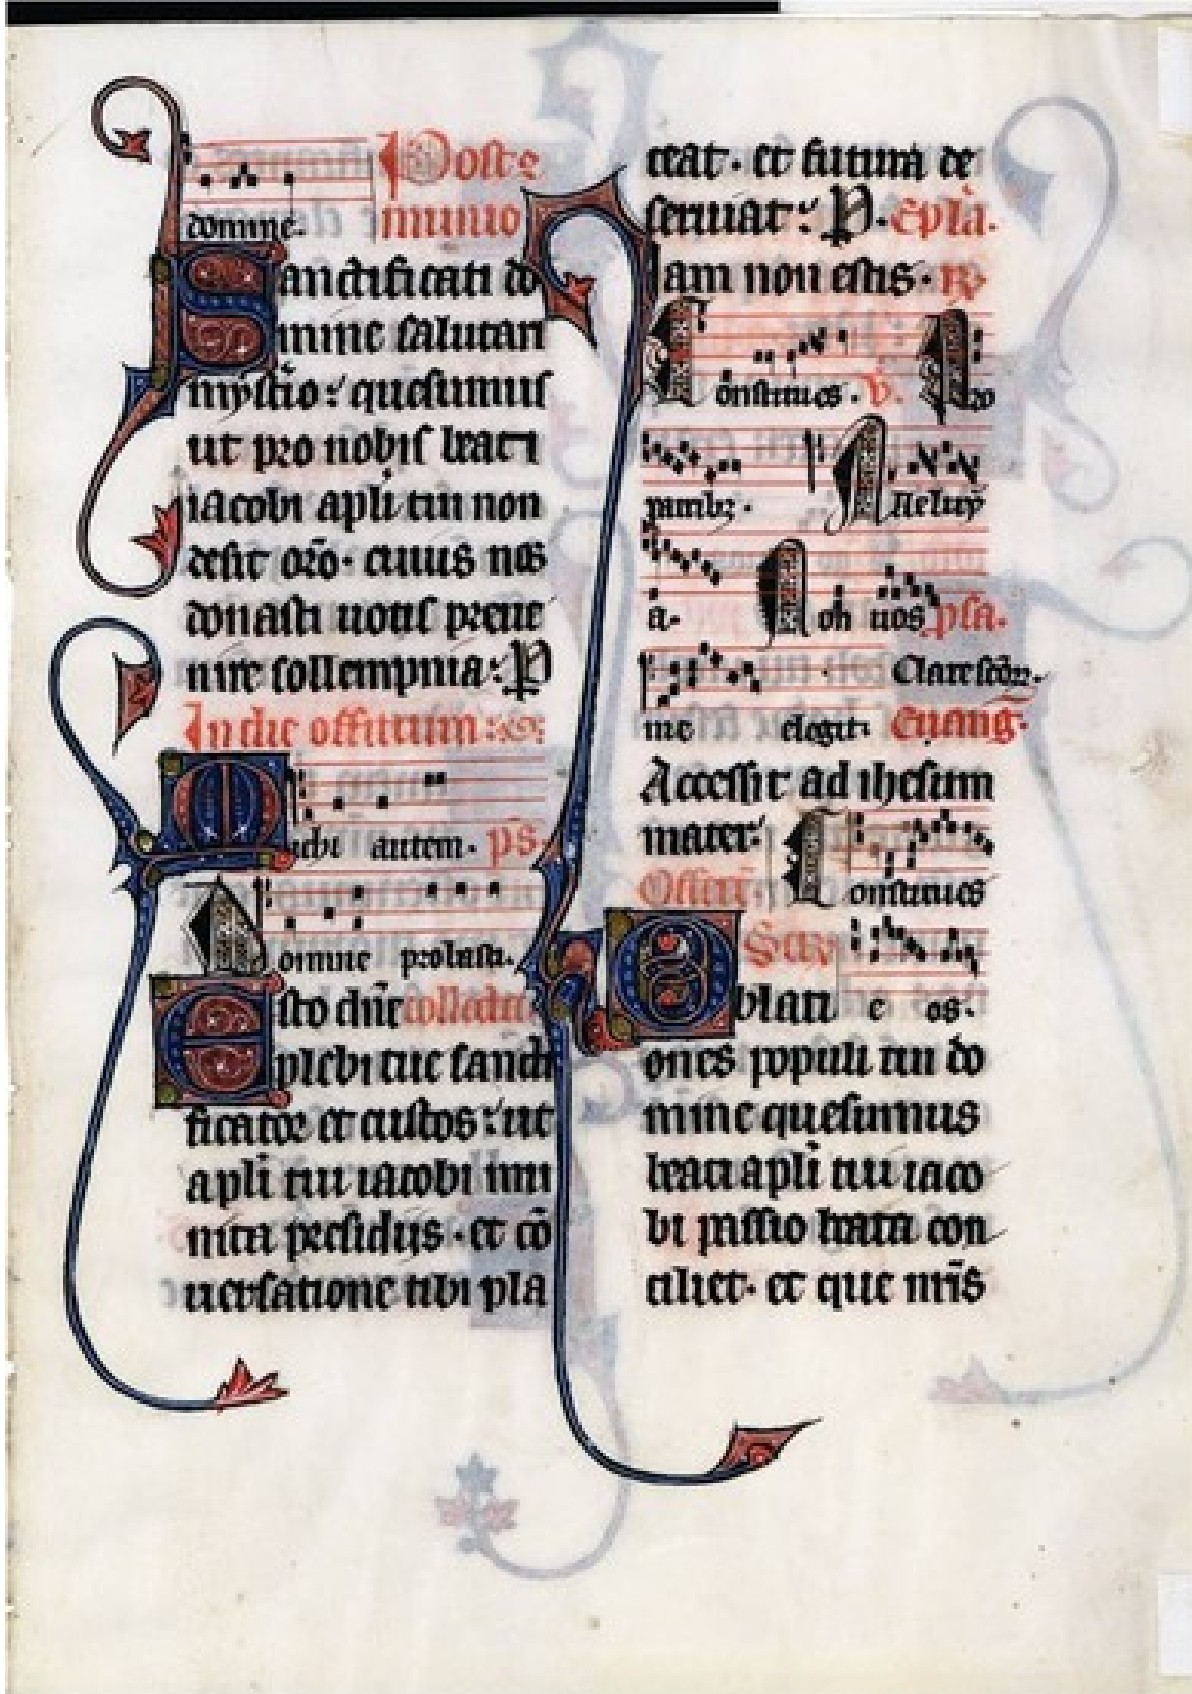 domine. Post co
munio
Sanctificati do
mine salutari
mysterio: quesumus
ut pro nobis beati
iacobi apli tui non
desit oro. cuius nos
donasti uotis preue
nire sollempnia: P
In die offitium
Michi autem. ps.
Domine probasti.
Esto dne collecta
plebi tue sancti
ficator et custos: ut
apli tui iacobi mu
nita presidiis. et co
uersatione tibi pla
ceat. et futura de
seruiat: P. Epla.
Iam non estis. R
Constitues. V. Pro
patribz. Alleluy
a. Non uos psa.
me elegit. Clare scor.
Euang.
Accessit ad ihesum
mater. Constitues
Offert.
Secr
Oblati e os.
ones populi tui do
mine quesumus
beati apli tui iaco
bi passio beata con
ciliet. et que nris